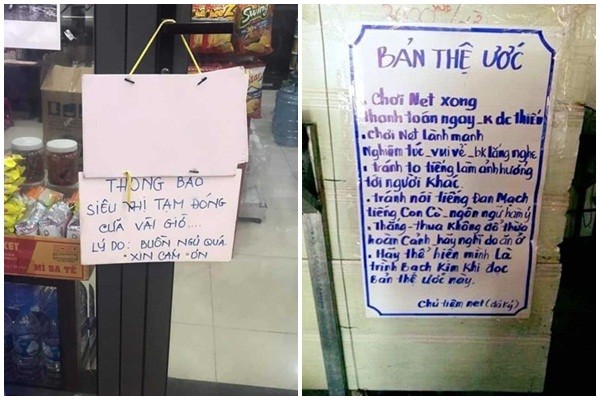 Swing
THÔNG BÁO
SIÊU THỊ TẠM ĐÓNG
CỬA VÀI GIỜ....
LÝ DO: BUỒN NGỦ QUÁ
XIN CÁM ƠN
MÌ SA TẾ
BẢN THỆ ƯỚC
. Chơi Net xong
thanh toán ngay _ k dc thiếu
. chơi Net Lành mạnh
Nghiêm túc _ vui vẻ _ bk lắng nghe
. tránh to tiếng làm ảnh hưởng
tới người Khác.
. tránh nói tiếng Đan Mạch
tiếng Con Cò _ ngôn ngữ hàm ý
. Thắng _ thua Không đổ thừa
hoàn Cảnh, hãy nghĩ do ăn ở
. Hãy thể hiện mình Là
trình Bạch Kim Khi đọc
Bản thệ ước này.
Chủ tiệm net (đã ký)